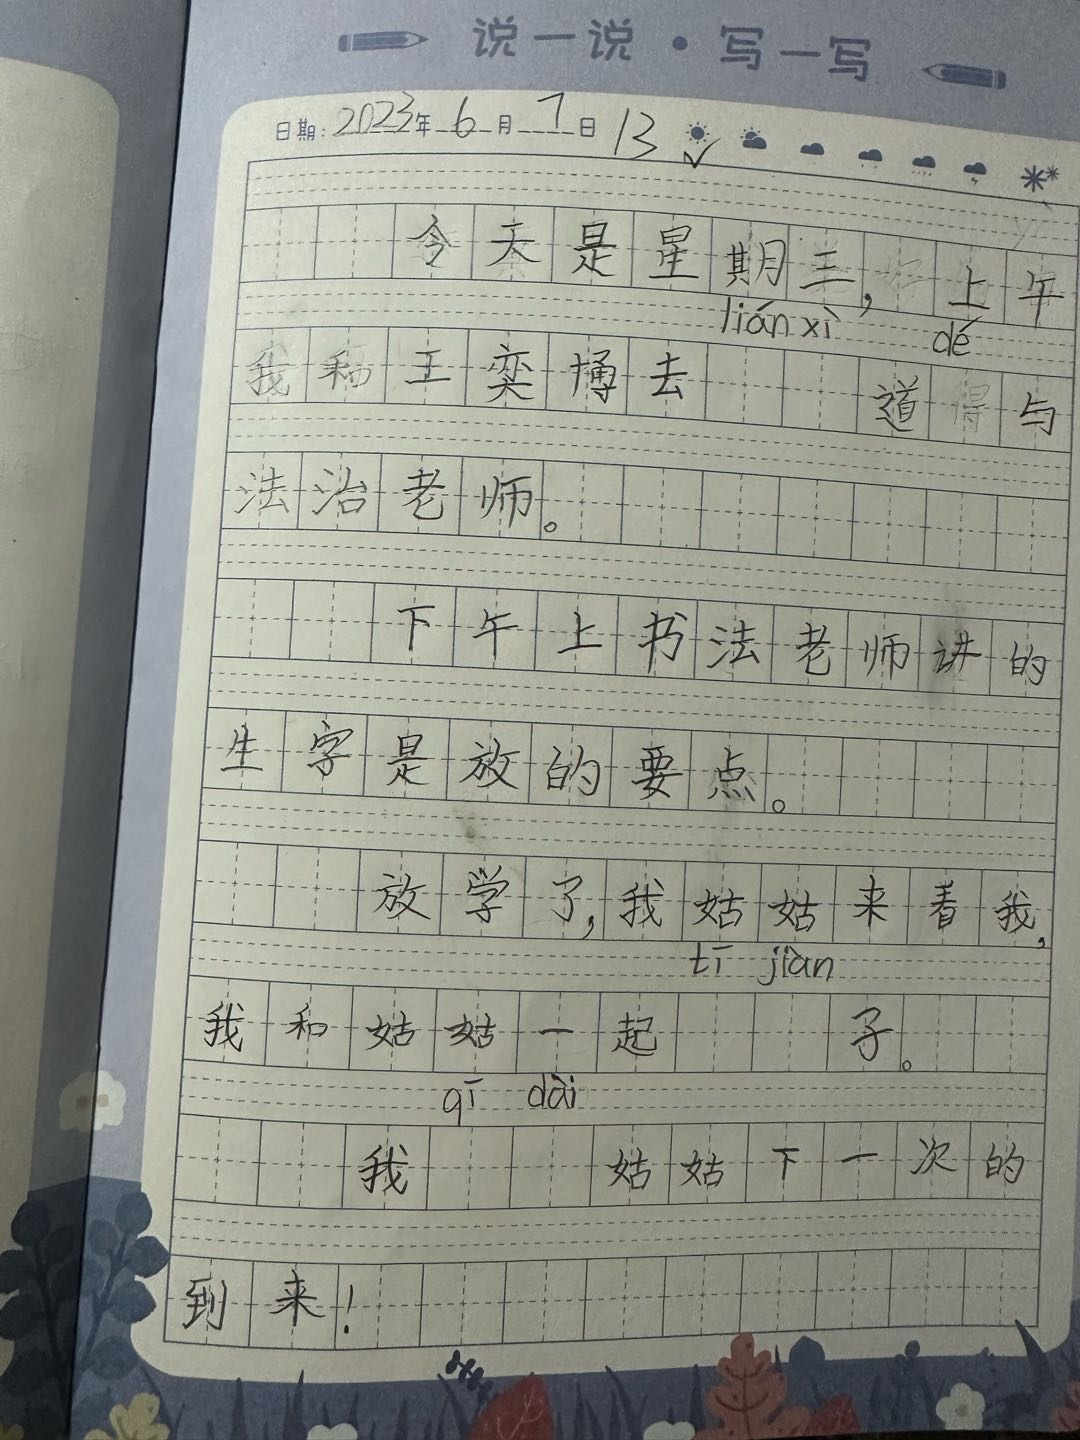 说一说·写一写
日期:2023年6月7日 13
今天是星期三,上午
lián xì dé
我和王奕博去 道得与
法治老师。
下午上书法老师讲的
生字是放的要点。
放学了,我姑姑来看我,
tī jiàn
我和姑姑一起 子。
qī dài
我 姑姑下一次的
到来!